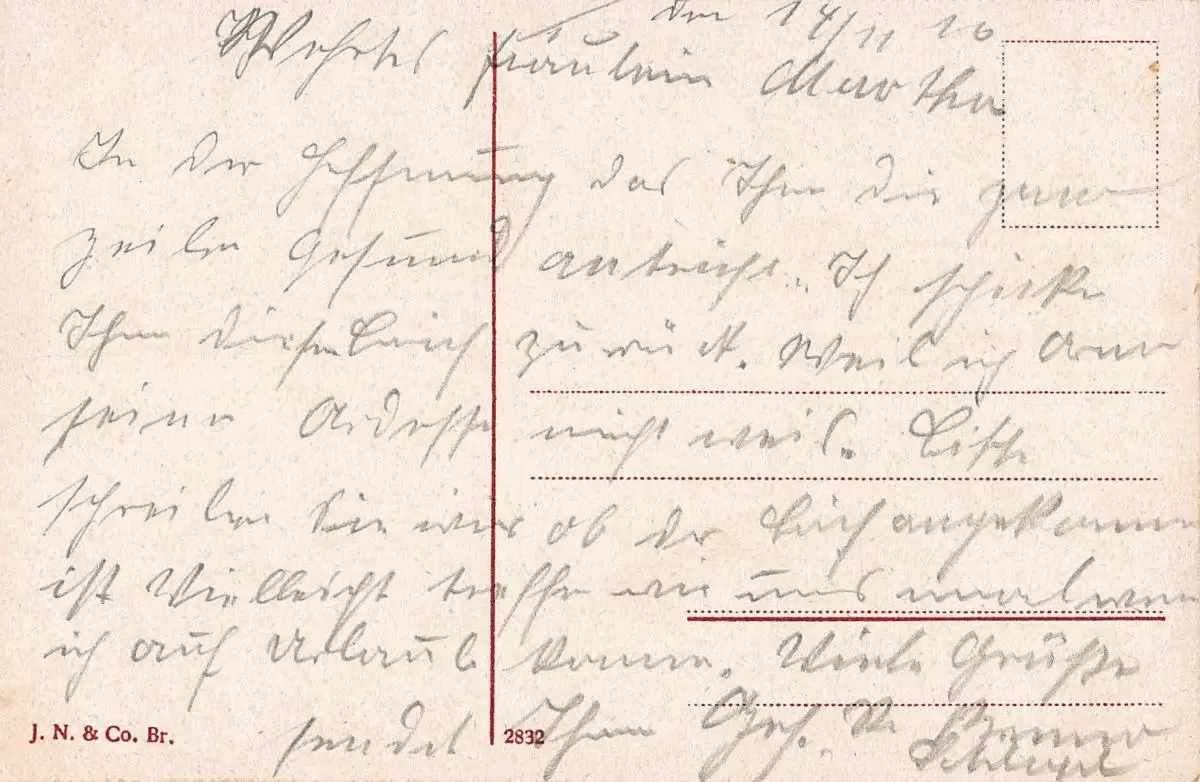 den 14/11 16
Wehrtes Fräulein Martha
In der Hoffnung das Ihn die paar
zeilen Gesund antrift. Ich schicke
Ihn diesen Brief zurück. Weil ich
seine Adesse nicht weis. Bitte
schreiben Sie mir ob der Brief angekomen
ist Vielleicht treffen wir uns mal wen
ich auf Urlaub komme. Viele Grüße
sendet Ihnen Gef.
J. N. & Co. Br.
2832